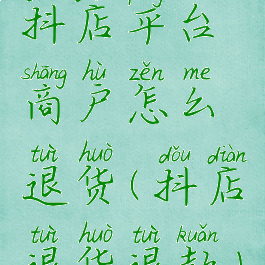 抖店平台
shāng hù zěn me
商户怎么
tuì huò dǒu diàn
退货(抖店
tuì huò tuì kuǎn
退货退款)